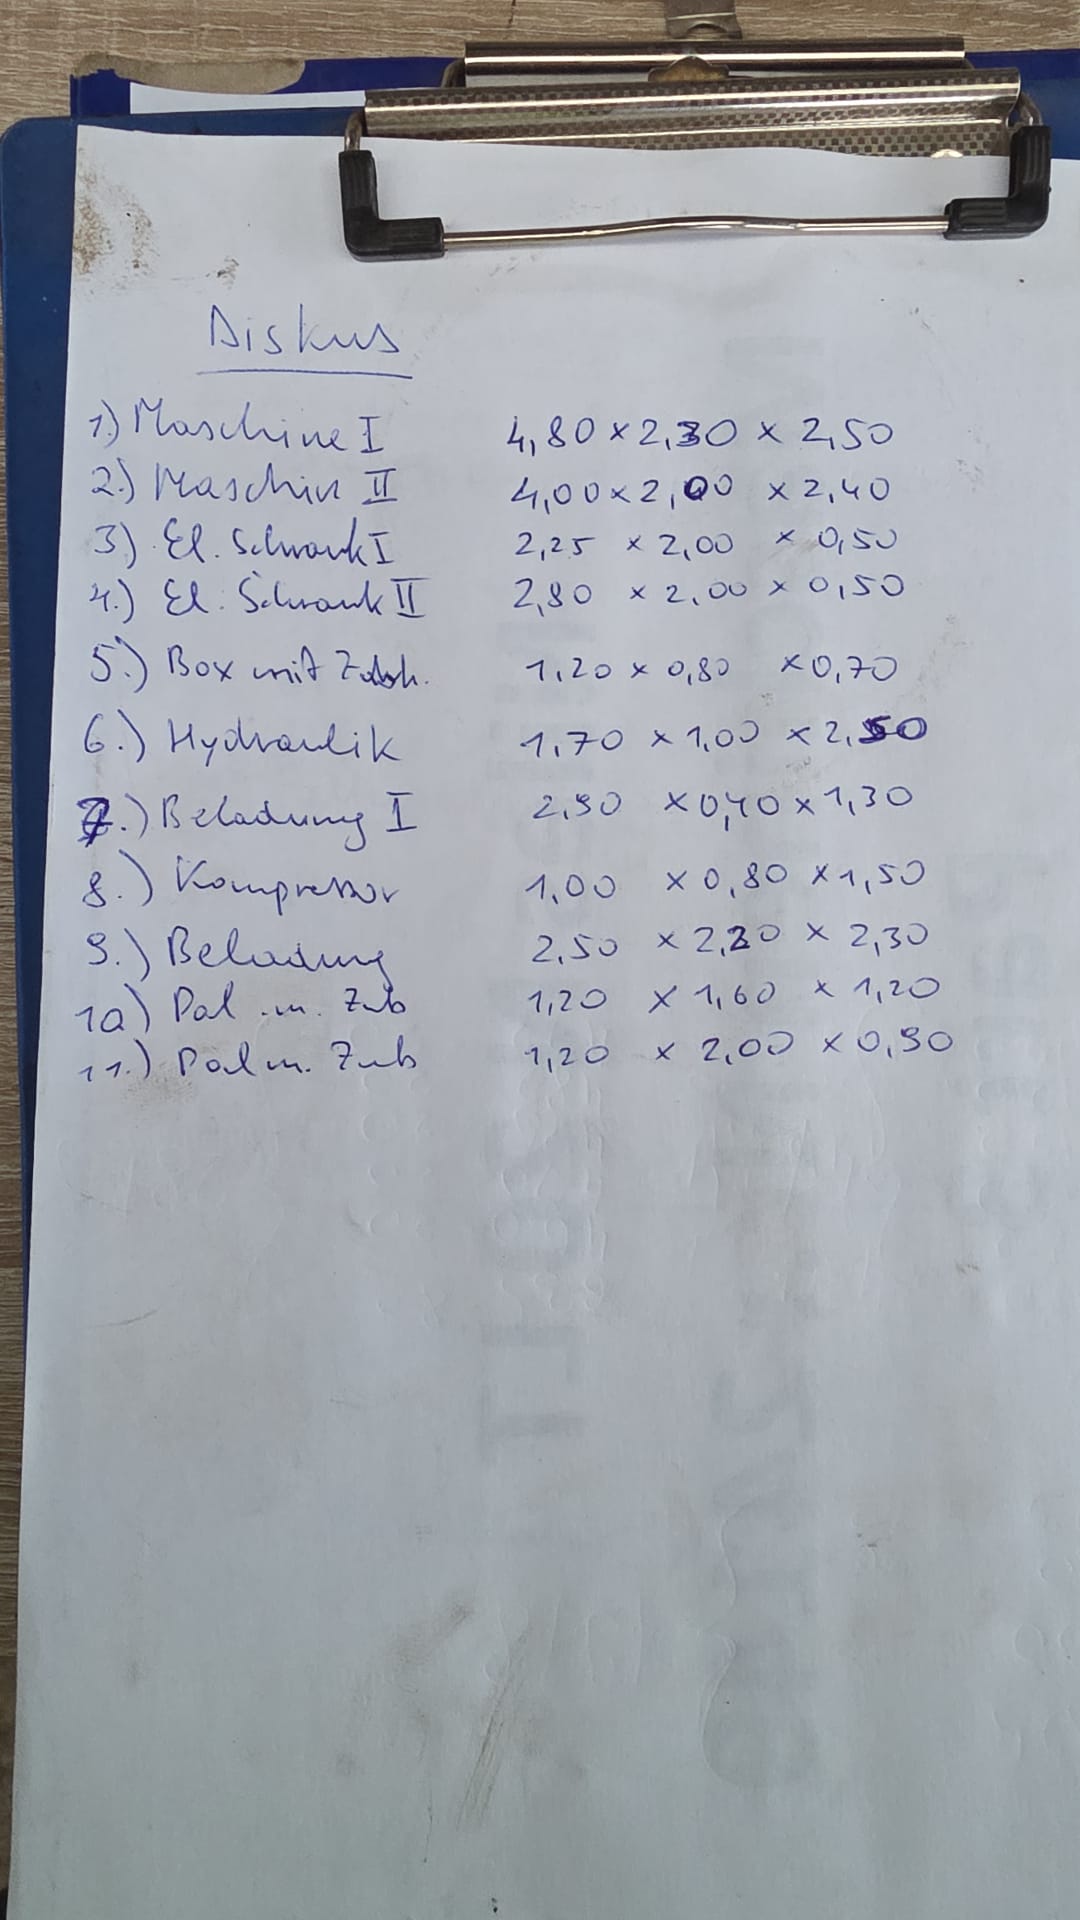 Diskus
1.) Maschine I 4,80 x 2,30 x 2,50
2.) Maschine II 4,00 x 2,00 x 2,40
3.) El. Schrank I 2,25 x 2,00 x 0,50
4.) El. Schrank II 2,80 x 2,00 x 0,50
5.) Box mit 1,20 x 0,80 x 0,70
6.) Hydraulik 1,70 x 1,00 x 2,50
7.) Beladung I 2,90 x 0,40 x 1,30
8.) Kompressor 1,00 x 0,80 x 1,50
9.) Beladung 2,50 x 2,20 x 2,30
10) Pal. m. Zub 1,20 x 1,60 x 1,20
11.) Pal m. Zub 1,20 x 2,00 x 0,90